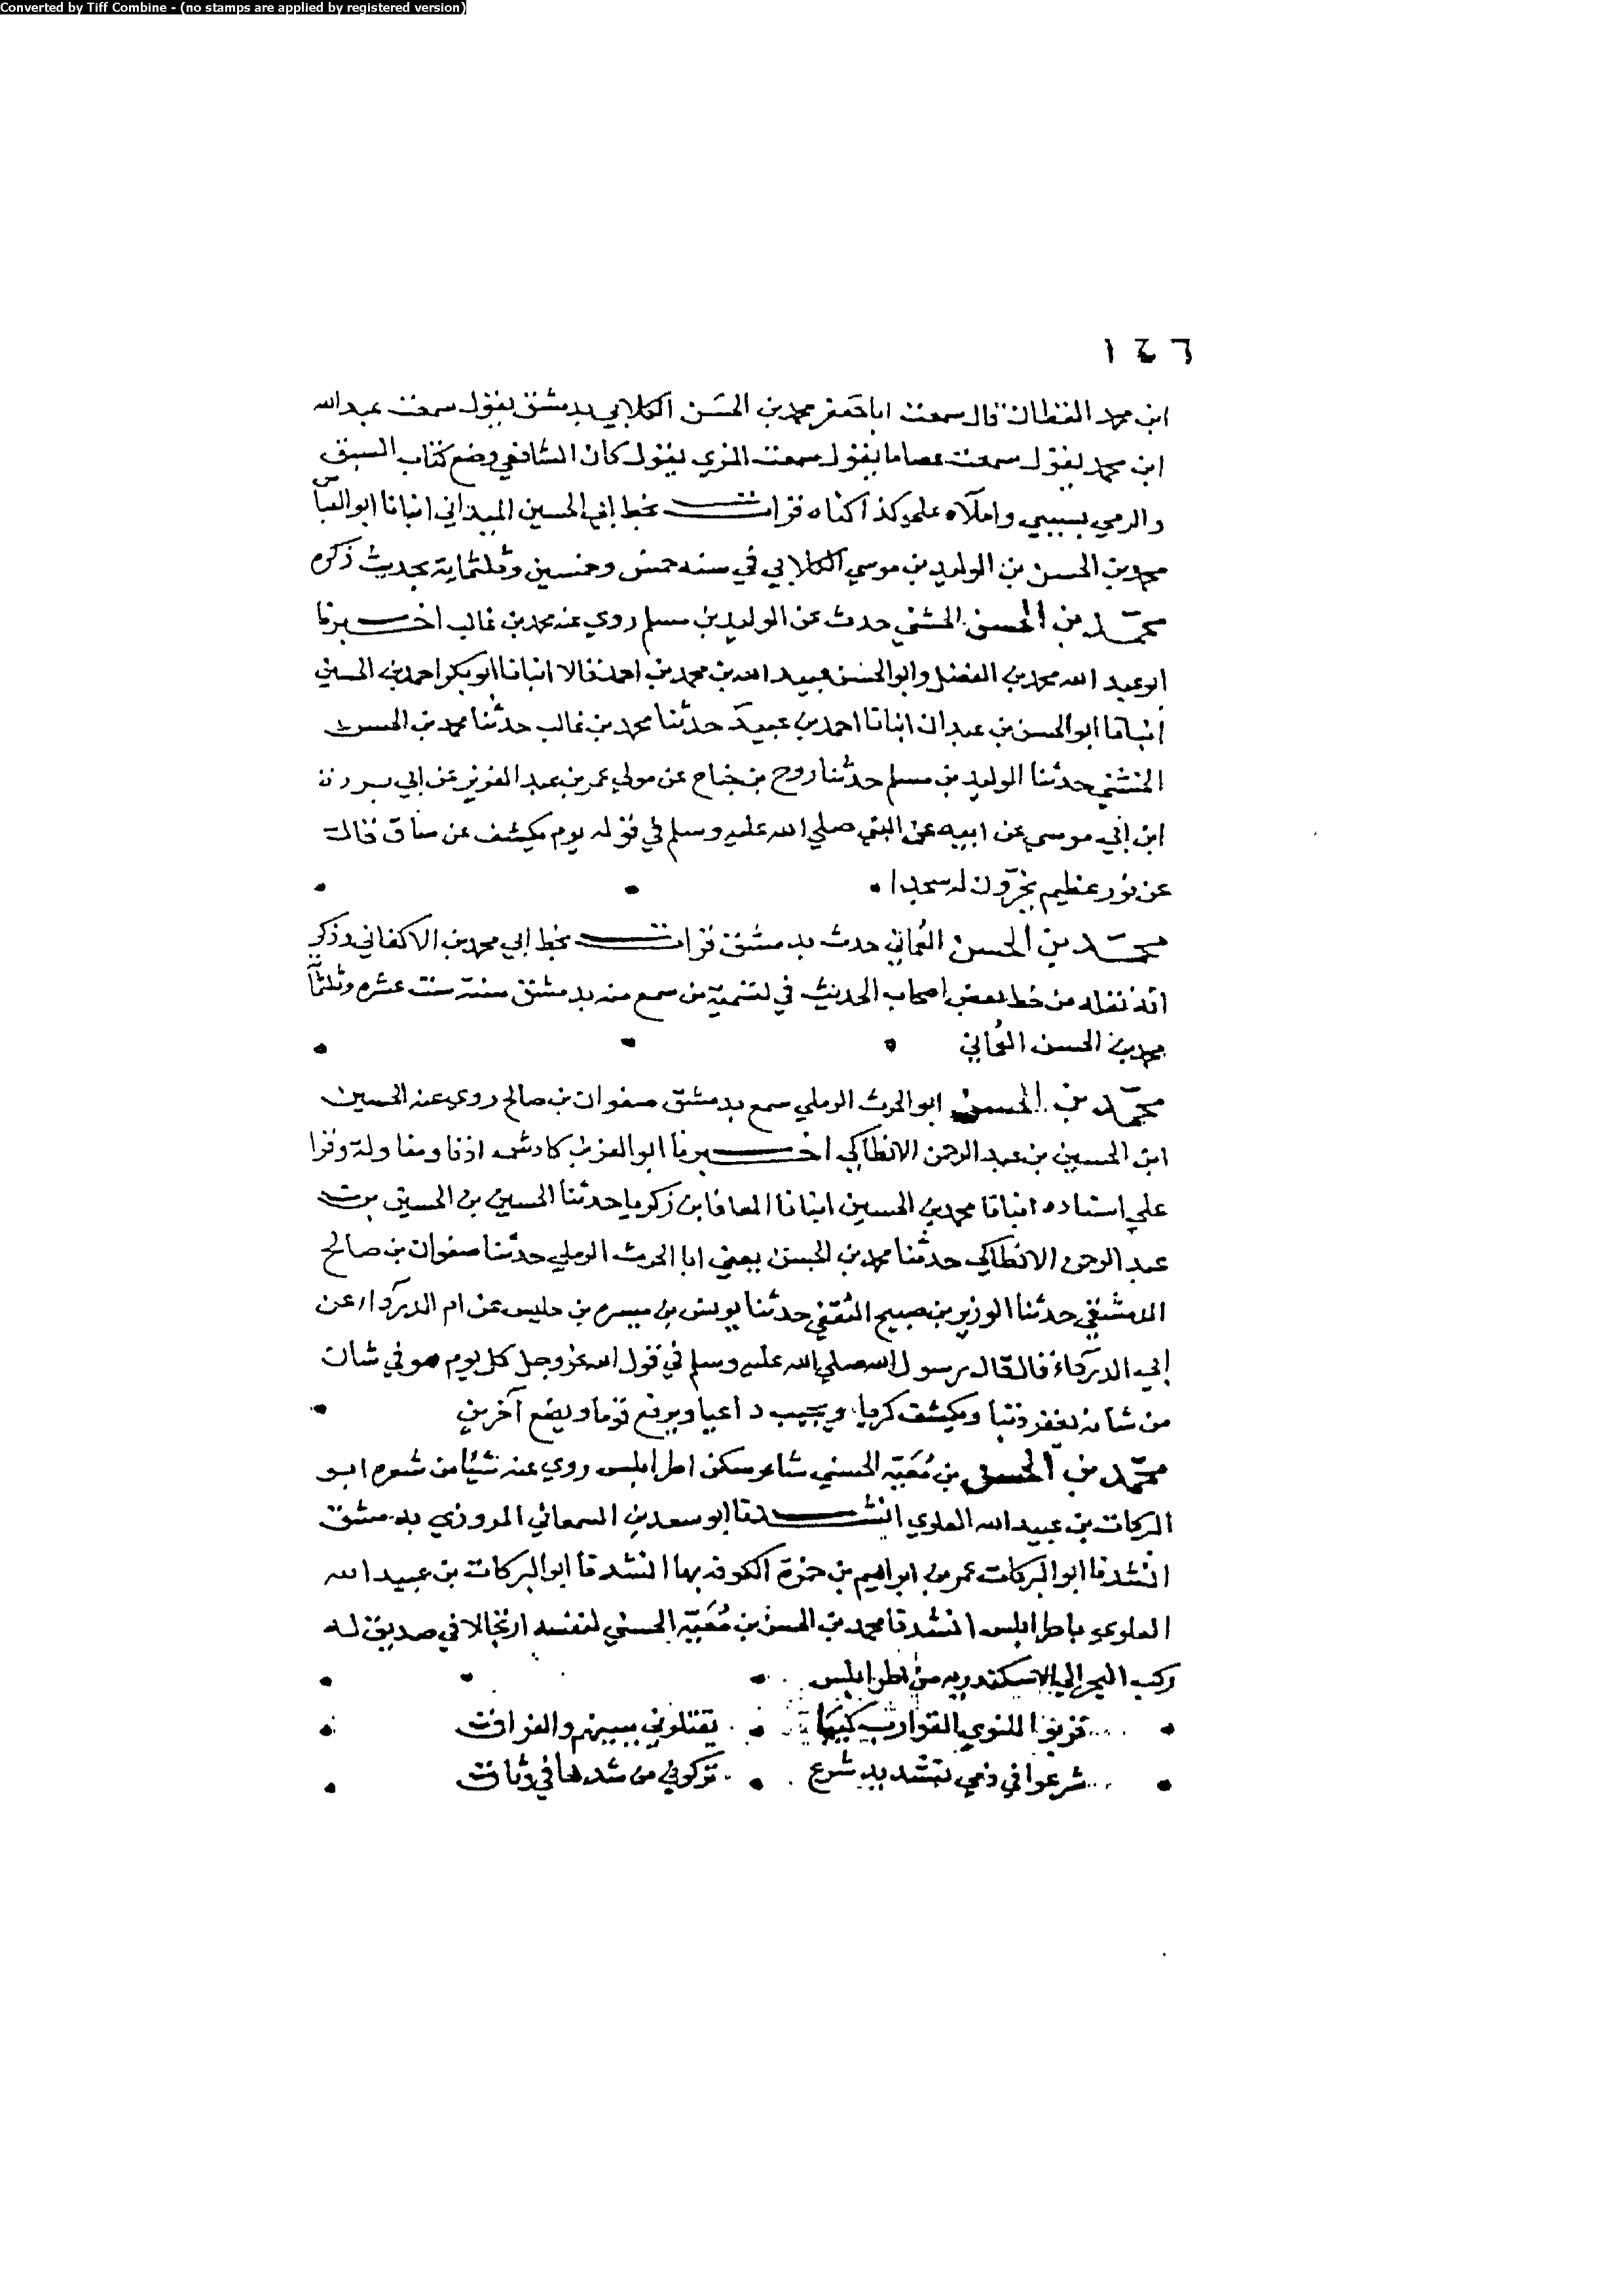 Converted by Tiff Combine - (no stamps are applied by registered version)
١٤٦
ابن محمد القطان قال سمعت ابا جعفر محمد بن الحسن الكلابي بدمشق يقول سمعت عبد الله
ابن محمد يقول سمعت عصاما يقول سمعت المزي يقول كان الشافعي وضع كتاب السبق
والرمي بسببي واملآه علي كذا كناه قرات بخط ابي الحسين الميداني انبانا ابو العباس
محمد بن الحسن بن الوليد بن موسي الكلابي في سنه خمس وخمسين وثلثماية بحديث ذكره
محمد بن الحسن الخشني حدث عن الوليد بن مسلم روي عنه محمد بن غالب اخبرنا
ابو عبد الله محمد بن الفضل وابو الحسن عبيد الله بن محمد بن احمد قالا انبانا ابو بكر احمد بن الحسين
انبانا ابو الحسن بن عبدان انبانا احمد بن عبيد حدثنا محمد بن غالب حدثنا محمد بن الحسن
الخشني حدثنا الوليد بن مسلم حدثنا روح بن جناح عن مولي عمر بن عبد العزيز عن ابي بردة
ابن ابي موسي عن ابيه عن النبي صلي الله عليه وسلم في قوله يوم يكشف عن ساق قال
عن نور عظيم يخرّون له سجدا
محمد بن الحسن العُماني حدث بدمشق قرات بخط ابي محمد بن الاكفاني وذكر
انه نقله من خط بعض اصحاب الحديث في تسمية من سمع منه بدمشق سنة ست عشره وثلثما
محمد بن الحسن العُماني
محمد بن الحسن ابو الحرث الرملي سمع بدمشق صفوان بن صالح روي عنه الحسين
ابن الحسين بن عبد الرحمن الانطاكي اخبرنا ابو العز بن كادش اذنا ومناولة وقرا
علي اسناده انبانا محمد بن الحسين انبانا المعافا بن زكريا حدثنا الحسين بن الحسين بن
عبد الرحمن الانطاكي حدثنا محمد بن الحسن يعني ابا الحرث الرملي حدثنا صفوان بن صالح
الدمشقي حدثنا الوزير بن صبيح الثقفي حدثنا يونس بن ميسره بن حلبس عن ام الدرداء عن
ابي الدرداء قال قال رسول الله صلي الله عليه وسلم في قول الله عز وجل كل يوم هو في شان
من شانه يغفر ذنبا ويكشف كربا ويجيب داعيا ويرفع قوما ويضع آخرين
محمد بن الحسن بن مُعَيّه الحسني شاعر سكن اطرابلس روي عنه شيئا من شعره ابو
البركات بن عبيد الله العلوي انشدنا ابو سعد بن السمعاني المروزي بدمشق
انشدنا ابو البركات عمر بن ابراهيم بن حمزة الكوفه بها انشدنا ابو البركات بن عبيد الله
العلوي باطرابلس انشدنا محمد بن الحسن بن مُعَيّه الحسني لنفسه ارتجالا في صديق له
ركب البحر الي الاسكندريه من اطرابلس
قربوا للنوي القوارب كيما يقتلوني ببينهم والفراق
شرعوا في دمي بتشديد شرع تركوني من شدها في وثاق